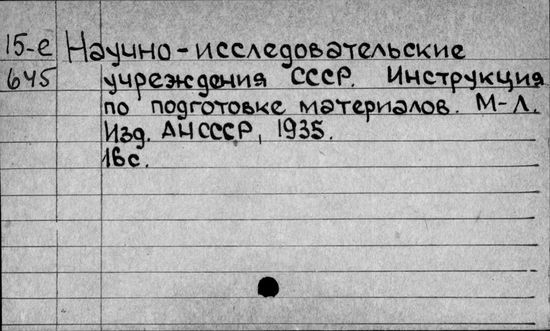 15-е Научно-исследовательские
645 учреждения СССР. Инструкция
по подготовке материалов. М-Л.
Изд. АНСССР, 1935.
16с.